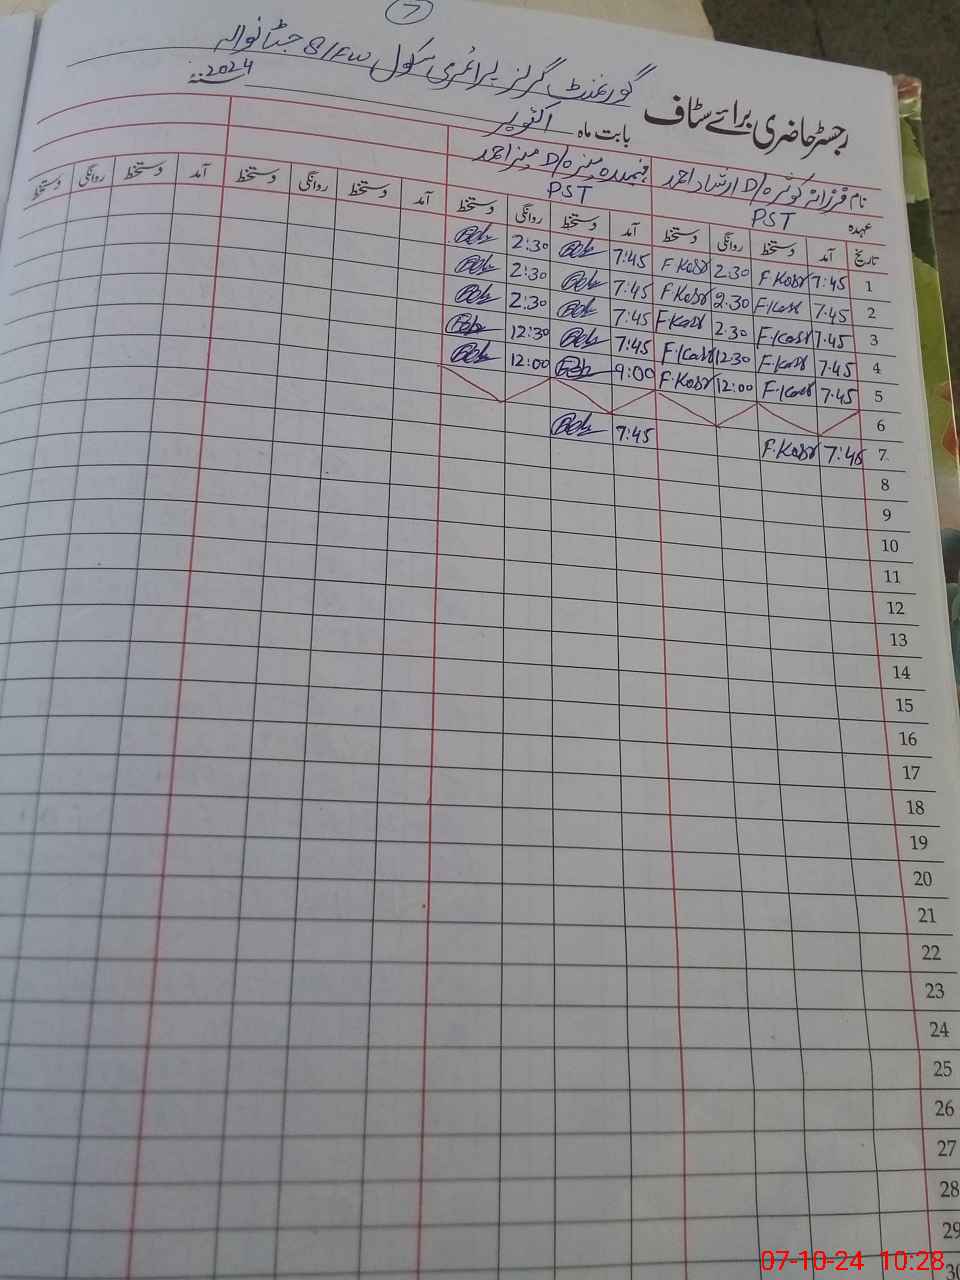 7
گورنمنٹ گرلز پرائمری سکول 8/FW جٹانوالہ
رجسٹر حاضری برائے سٹاف
بابت ماہ اکتوبر 2024
نام فرزانہ کوثر D/O ارشاد احمد D/O منیر احمد
عہدہ PST PST
تاریخ آمد دستخط روانگی دستخط آمد دستخط روانگی دستخط آمد دستخط روانگی دستخط آمد دستخط روانگی دستخط
1 7:45 F.Kosr 2:30 F.Kosr 7:45 2:30
2 7:45 F.Kosr 2:30 F.Kosr 7:45 2:30
3 7:45 F.Kosr 2:30 F.Kosr 7:45 2:30
4 7:45 F.Kosr 12:30 F.Kosr 7:45 12:30
5 7:45 F.Kosr 12:00 F.Kosr 9:00 12:00
6
7 7:45 F.Kosr 7:45
8
9
10
11
12
13
14
15
16
17
18
19
20
21
22
23
24
25
26
27
28
29
30
07-10-24 10:28